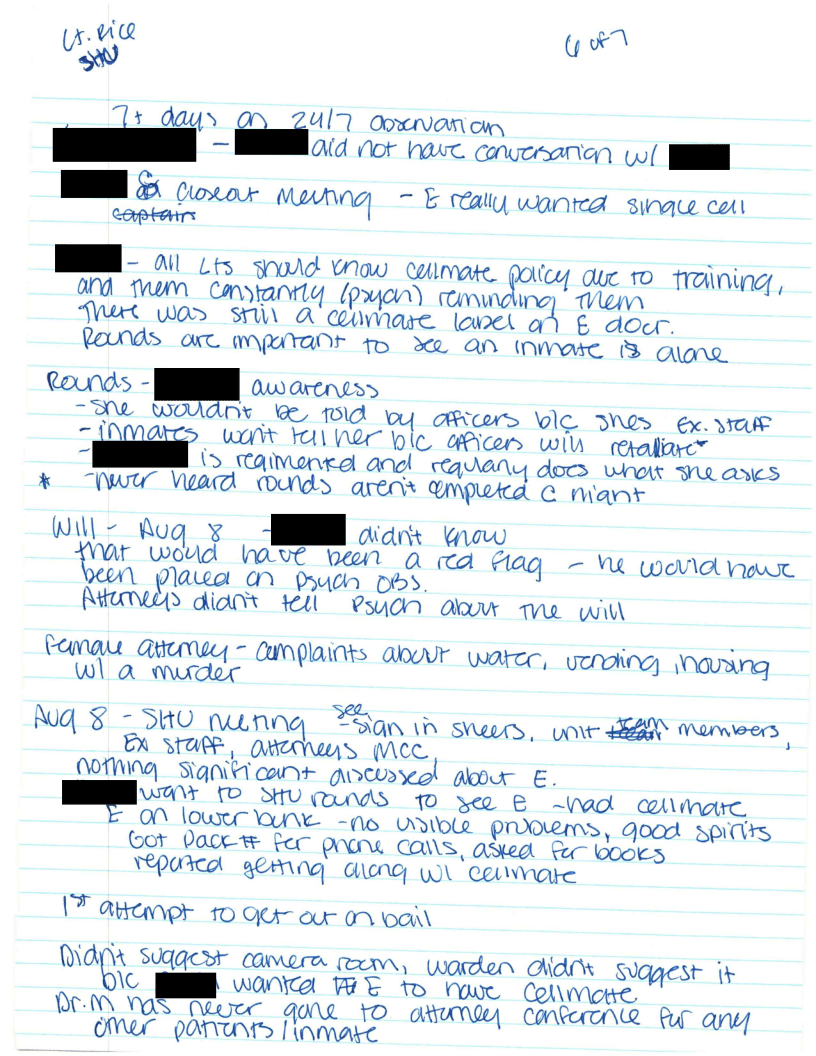 Lt. Rice
SHU
6 of 7
7+ days on 24/7 observation
– did not have conversation w/
Closeout Meeting – E really wanted single cell
captain
– all Lts should know cellmate policy due to training,
and them constantly (psych) reminding them
There was still a cellmate label on E door.
Rounds are important to see an inmate is alone
Rounds - awareness
- she wouldn't be told by officers b/c shes Ex. Staff
- inmates won't tell her b/c officers will retaliate*
- is regimented and regularly does what she asks
* -never heard rounds aren't completed @ night
Will - Aug 8 - didn't know
that would have been a red flag – he would have
been placed on psych OBS.
Attorneys didn't tell Psych about the will
Female attorney - complaints about water, vending, housing
w/ a murder
Aug 8 - SHU meeting - see sign in sheets, unit team members,
Ex staff, attorneys MCC
nothing significant discussed about E.
want to SHU rounds to see E -had cellmate
E on lower bunk -no visible problems, good spirits
Got Pack # for phone calls, asked for books
reported getting along w/ cellmate
1st attempt to get out on bail
Didn't suggest camera room, warden didn't suggest it
b/c wanted E to have cellmate
Dr. M has never gone to attorney conference for any
other patients/inmate